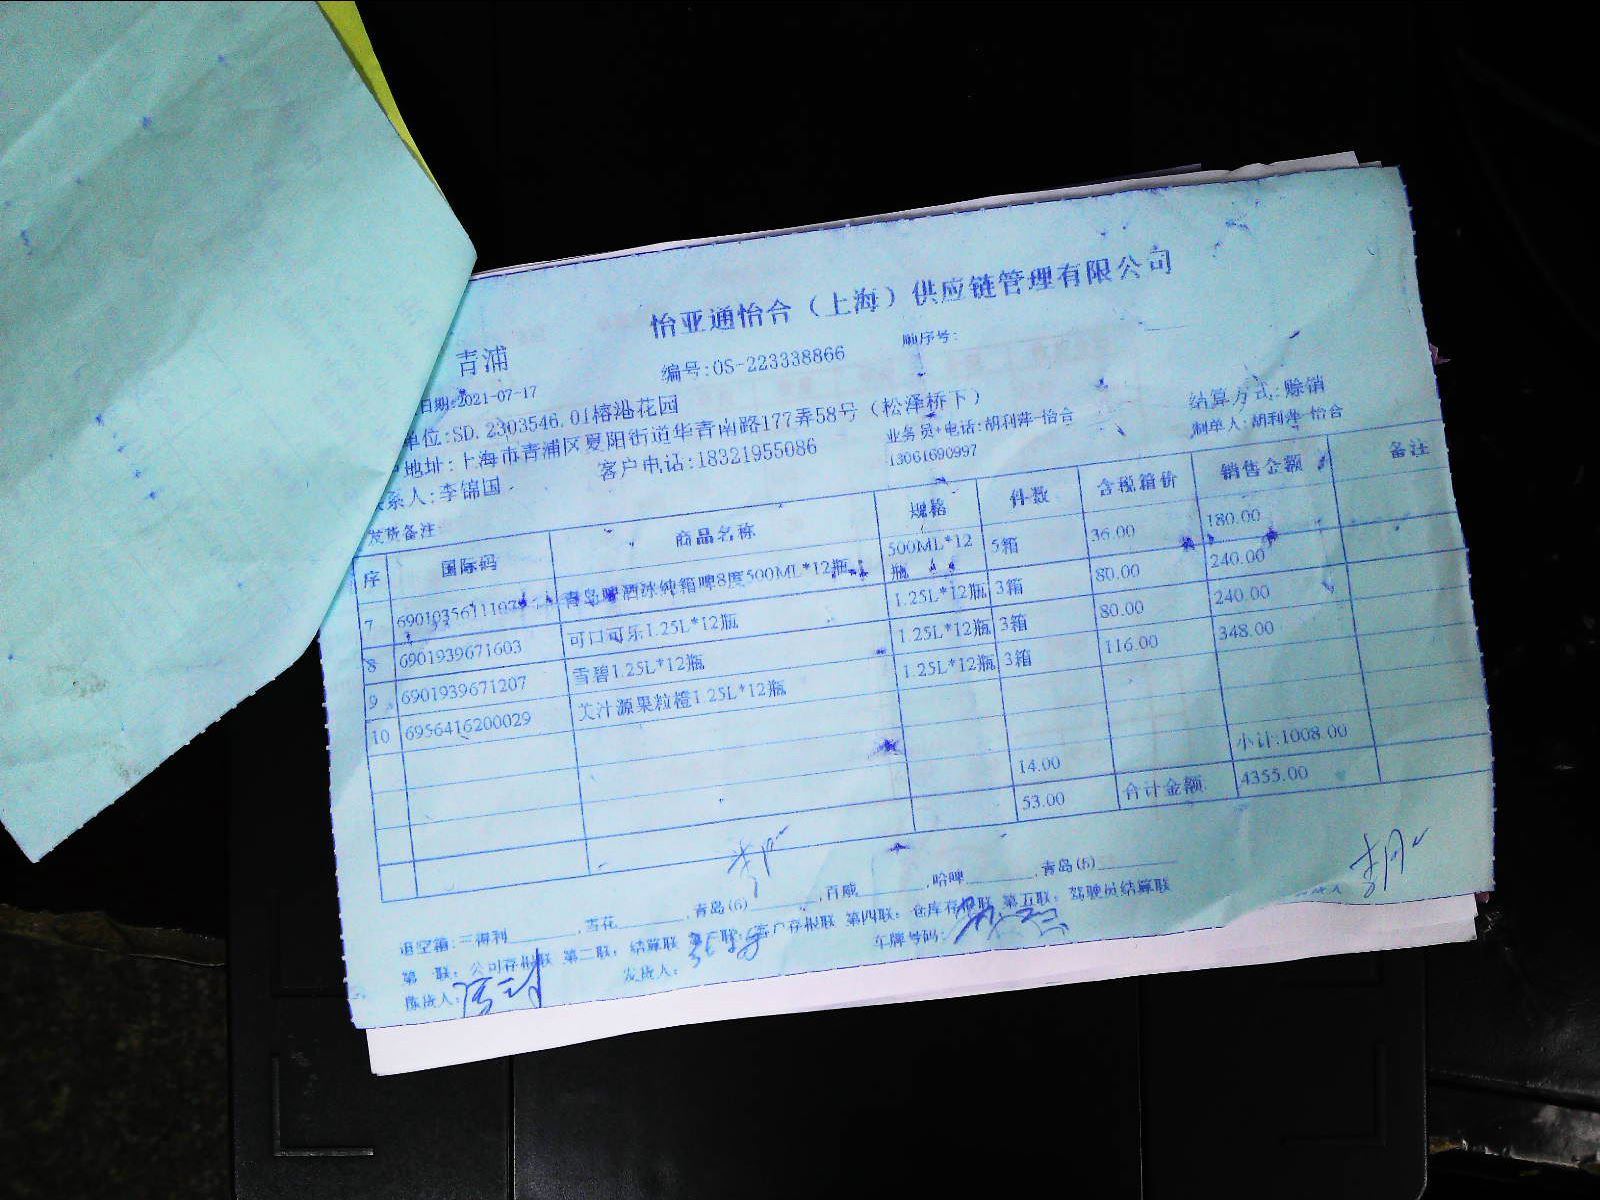 怡亚通怡合（上海）供应链管理有限公司
青浦 编号:OS-223338866 顺序号:
日期:2021-07-17
单位:SD.2303546.01榕汕花园 结算方式:赊销
地址:上海市青浦区夏阳街道华青南路177弄58号（松泽桥下） 制单人:胡利萍-怡合
系人:李锦国 客户电话:18321955086 业务员+电话:胡利萍-怡合
13061690997
发货备注:
序 国际码 商品名称 规格 件数 含税箱价 销售金额 备注
7 青岛啤酒冰纯箱啤8度500ML*12瓶 500ML*12瓶 5箱 36.00 180.00
8 6901939671603 可口可乐1.25L*12瓶 1.25L*12瓶 3箱 80.00 240.00
9 6901939671207 雪碧1.25L*12瓶 1.25L*12瓶 3箱 80.00 240.00
10 6956416200029 美汁源果粒橙1.25L*12瓶 1.25L*12瓶 3箱 116.00 348.00
14.00 小计:1008.00
53.00 合计金额 4355.00
退空箱:三得利______,雪花______,青岛(6)______,百威______,哈啤______,青岛(5)______
第一联: 公司存根联 第二联: 结算联 联: 客户存根联 第四联: 仓库存根联 第五联: 驾驶员结算联
发货人: 车牌号码: